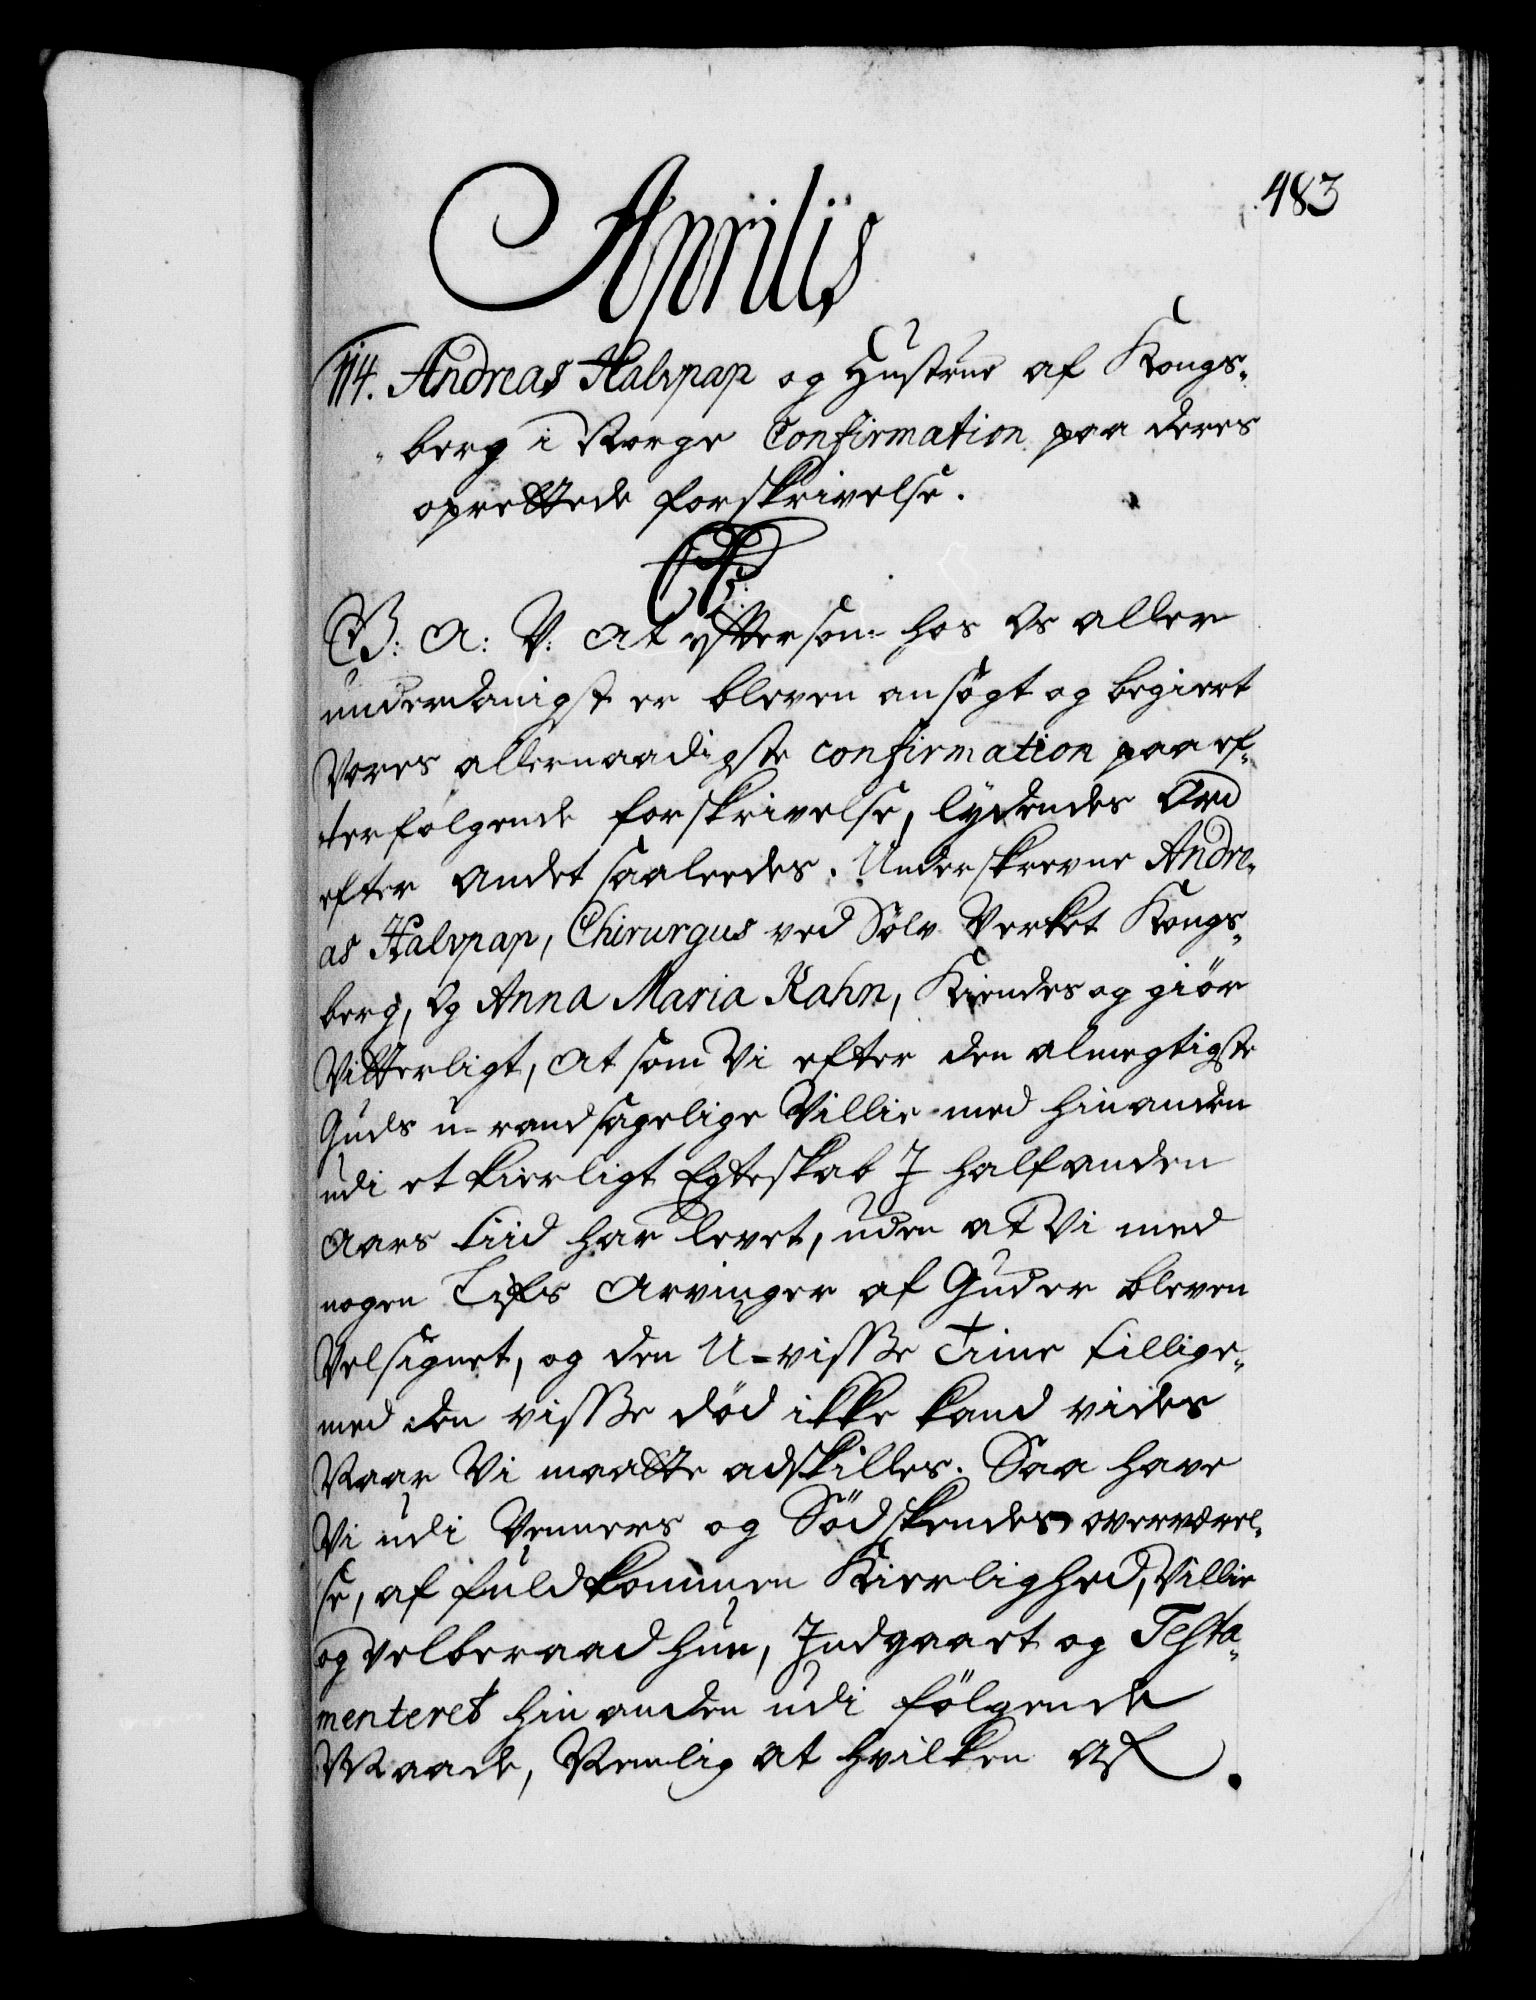 483
Aprilis
114. Andreas Halvpap og Hustrue af Kongs-
berg i Norge Confirmation paa deres
oprettede forskrivelse.
G: A: V: At eftersom hos Os aller
underdanigst er bleven ansøgt og begiert
Vores allernaadigste confirmation paa ef-
terfølgende forskrivelse, lydendes Ord
efter Andet saaleedes. Underskrevne Andre-
as Halvpap, Chirurgus ved Sølv Verket Kongs-
berg, Og Anna Maria Rahn, Kiendes og giør
Vitterligt, At som Vi efter den almegtigste
Guds u-randsagelige Villie med hinanden
udi et kierligt Egteskab J halfanden
Aars tiid har levet, uden at Vi med
nogen Lifs Arvinger af Gud er bleven
Velsignet, og den U-visse Time tillige-
med den visse død ikke kand vides
Naar Vi maatte adskilles. Saa have
Vi udi Venners og Sødskendes overværel-
se, af fuldkommen Kierlighed, Villie
og velberaad Hue, Indgaaet og Testa-
menteret hinanden udi følgende
Maade, Nemlig at hvilken Af